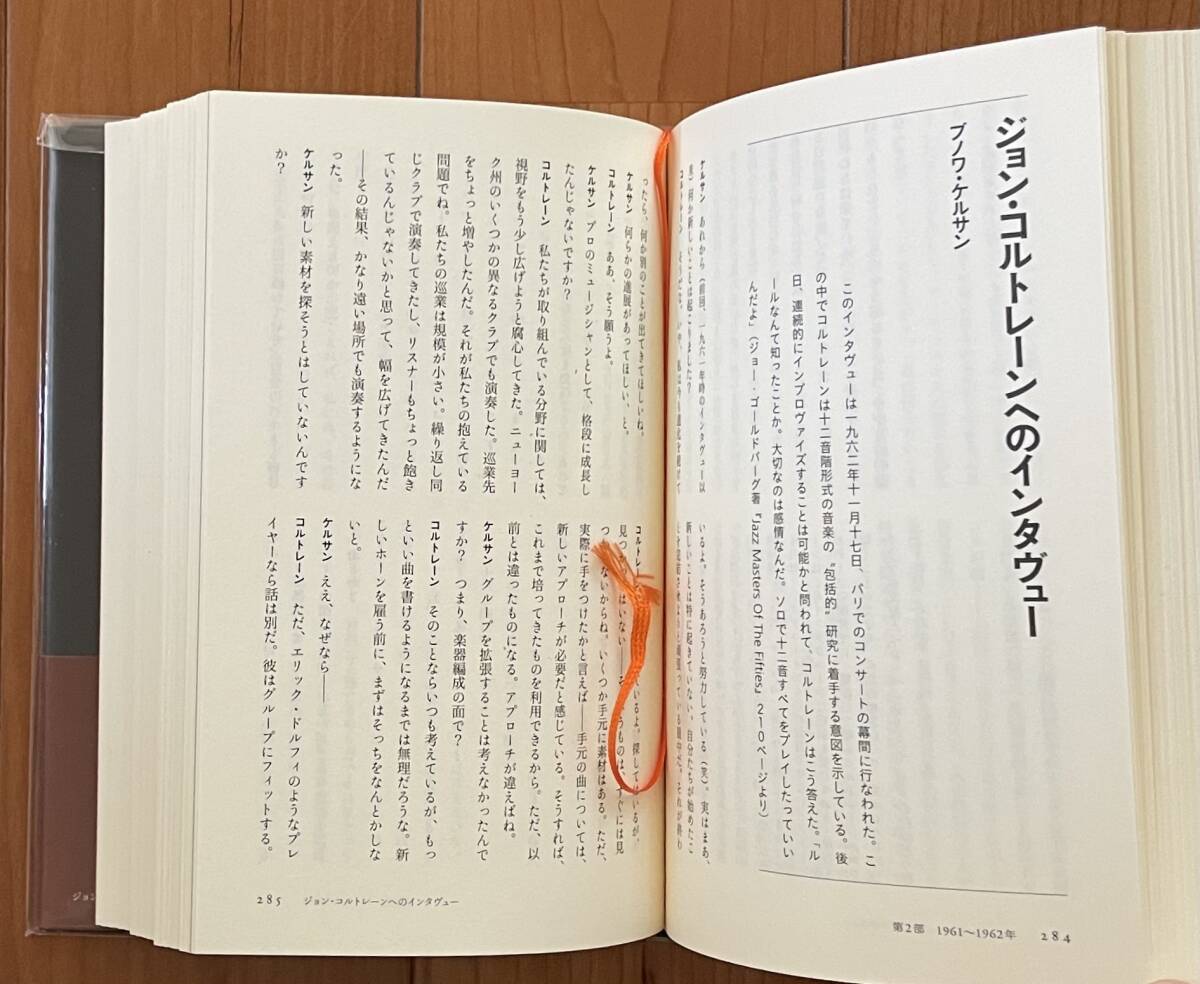 ジョン・コルトレーンへのインタヴュー
ブノワ・ケルサン
このインタヴューは一九六二年十一月十七日、パリでのコンサートの幕間に行なわれた。こ
の中でコルトレーンは十二音階形式の音楽の〝包括的〟研究に着手する意図を示している。後
日、連続的にインプロヴァイズすることは可能かと問われて、コルトレーンはこう答えた。「ル
ールなんて知ったことか。大切なのは感情なんだ。ソロで十二音すべてをプレイしたっていい
んだよ」（ジョー・ゴールドバーグ著『Jazz Masters Of The Fifties』210ページより）
ケルサン　あれから（前回、一九六一年時のインタヴュー以
来）何か新しいことは起こりました？
コルトレーン
いるよ。そうあろうと努力している（笑）。実はまあ、
新しいことは特に起きていない。自分たちが始めたこ
第2部　1961〜1962年　284
ったら、何か別のことが出てきてほしいね。
ケルサン　何らかの進展があってほしい、と。
コルトレーン　ああ、そう願うよ。
ケルサン　プロのミュージシャンとして、格段に成長し
たんじゃないですか？
コルトレーン　私たちが取り組んでいる分野に関しては、
視野をもう少し広げようと腐心してきた。ニューヨー
ク州のいくつかの異なるクラブでも演奏した。巡業先
をちょっと増やしたんだ。それが私たちの抱えている
問題でね。私たちの巡業は規模が小さい。繰り返し同
じクラブで演奏してきたし、リスナーもちょっと飽き
ているんじゃないかと思って、幅を広げてきたんだ
――その結果、かなり遠い場所でも演奏するようにな
った。
ケルサン　新しい素材を探そうとはしていないんです
か？
コルトレーン いるよ。探してはいるが、
見つ はいない―― ものは、すぐには見
つ ないからね。いくつか手元に素材はある。ただ、
実際に手をつけたかと言えば――手元の曲については、
新しいアプローチが必要だと感じている。そうすれば、
これまで培ってきたものを利用できるから。ただ、以
前とは違ったものになる。アプローチが違えばね。
ケルサン　グループを拡張することは考えなかったんで
すか？　つまり、楽器編成の面で？
コルトレーン　そのことならいつも考えているが、もっ
といい曲を書けるようになるまでは無理だろうな。新
しいホーンを雇う前に、まずはそっちをなんとかしな
いと。
ケルサン　ええ、なぜなら――
コルトレーン　ただ、エリック・ドルフィのようなプレ
イヤーなら話は別だ。彼はグループにフィットする。
285　ジョン・コルトレーンへのインタヴュー
ジョン